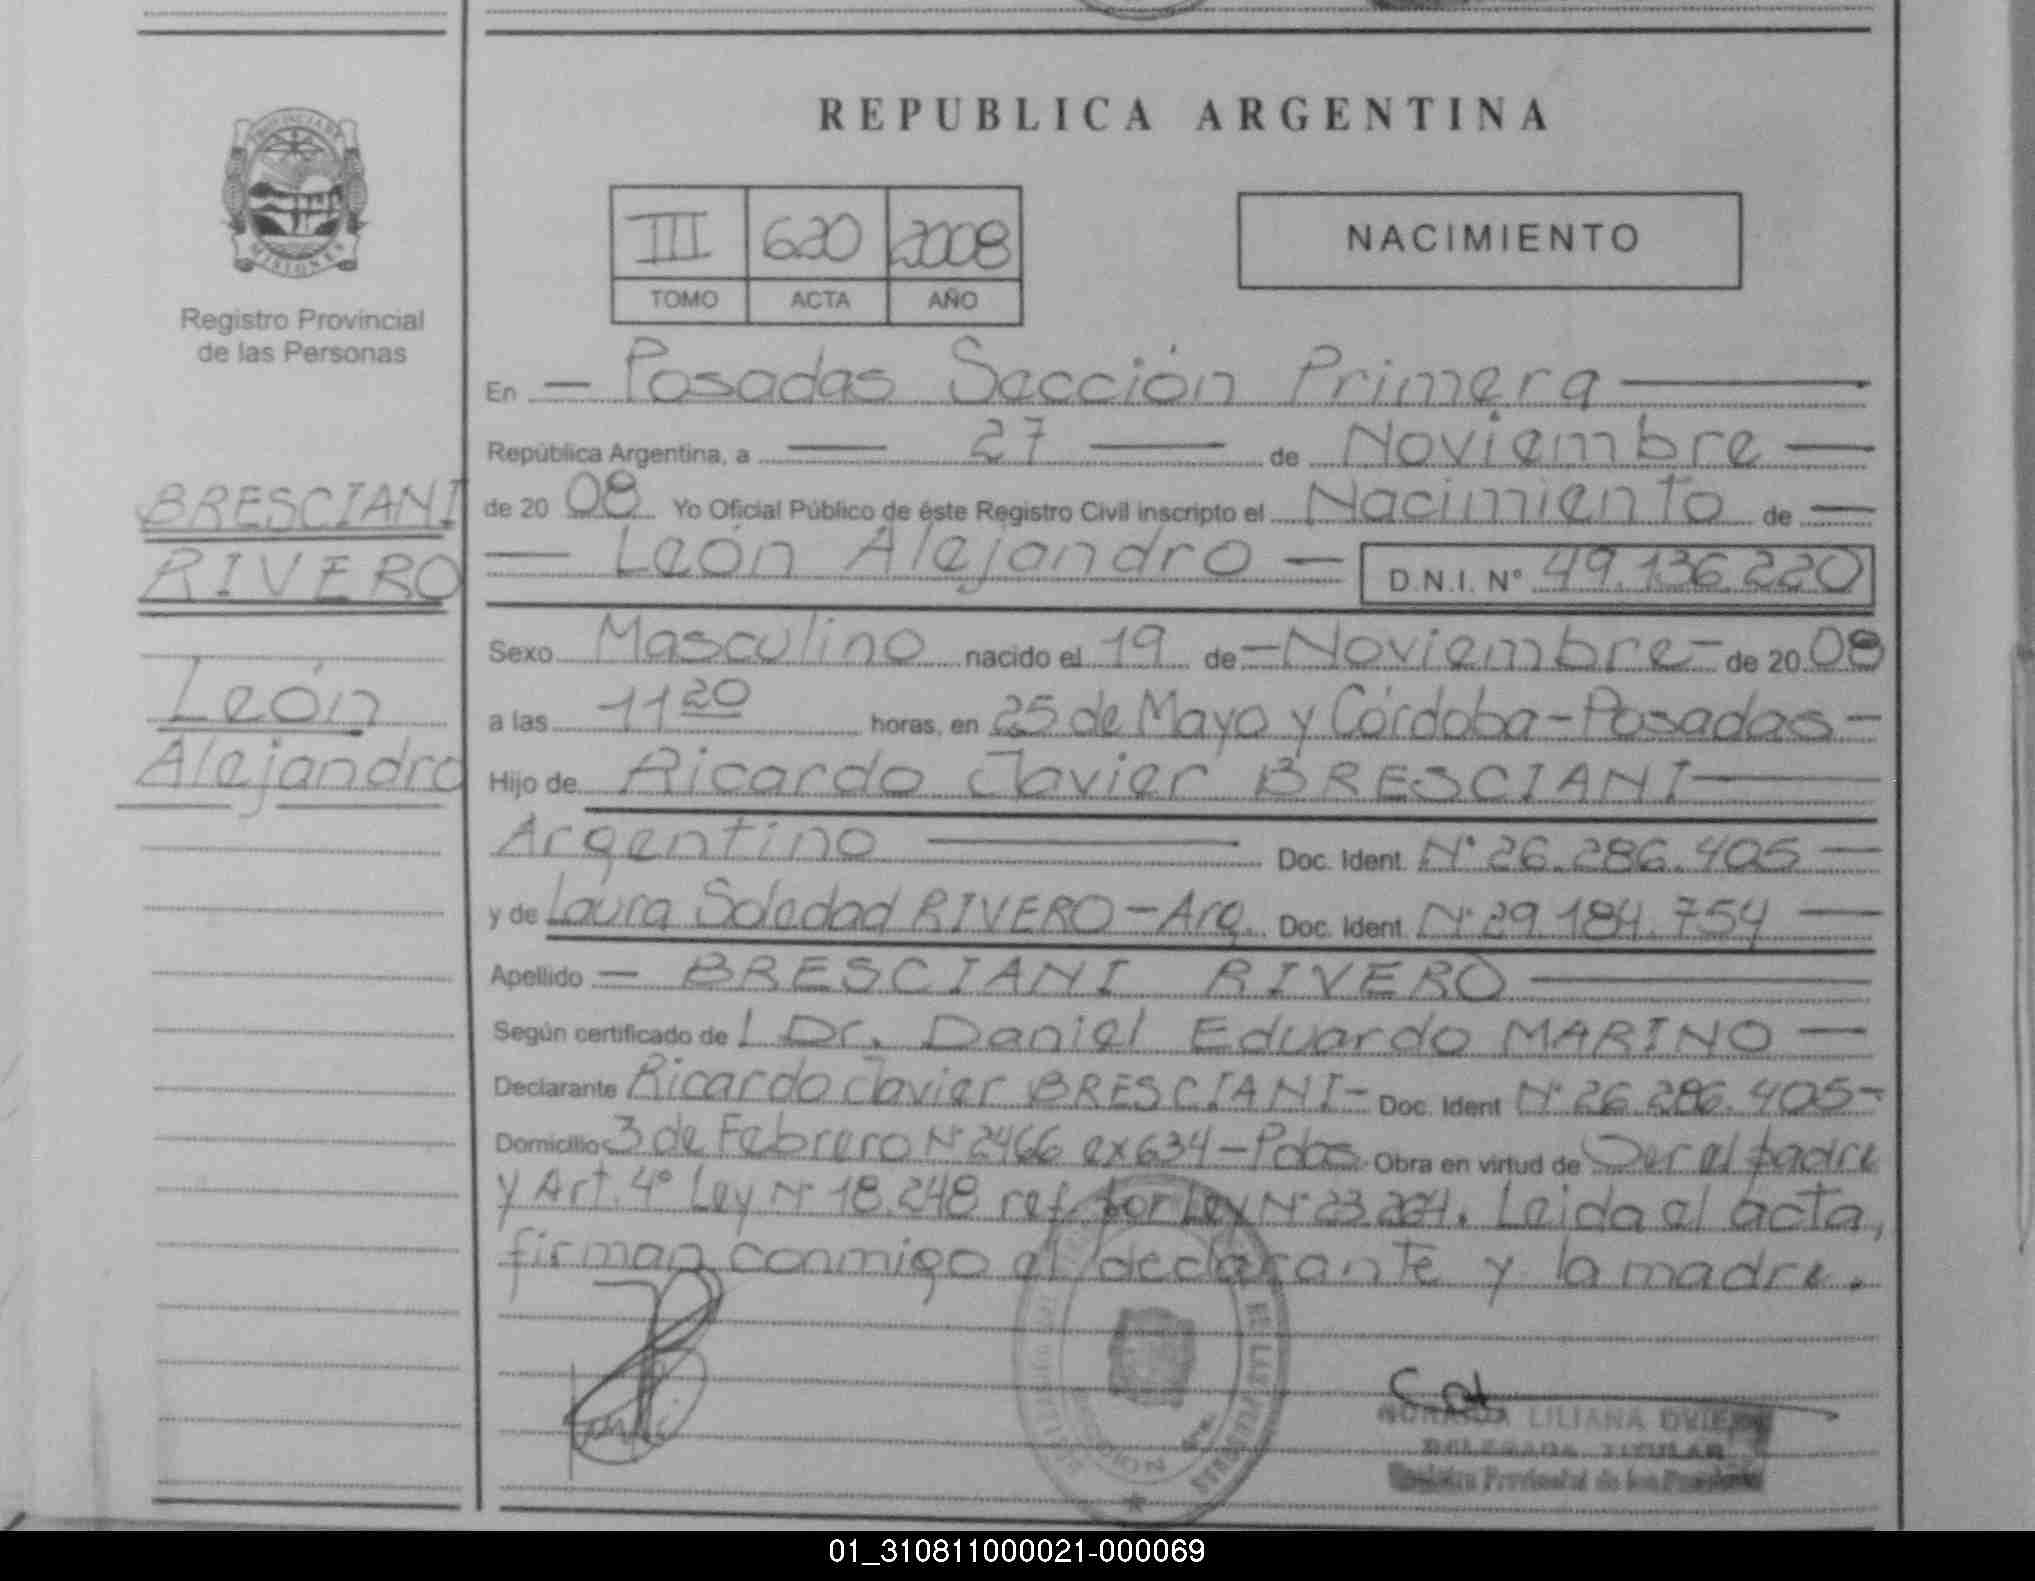 REPUBLICA ARGENTINA
PROVINCIA DE
MISIONES
Registro Provincial
de las Personas
III 620 2008
TOMO ACTA AÑO
NACIMIENTO
En — Posadas Sección Primera —
República Argentina, a — 27 — de Noviembre —
de 20 08 Yo Oficial Público de éste Registro Civil inscripto el Nacimiento de —
— León Alejandro — D.N.I. N° 49.136.220
BRESCIANI
RIVERO
León
Alejandro
Sexo Masculino nacido el 19 de — Noviembre — de 20 08
a las 11 20 horas, en 25 de Mayo y Córdoba - Posadas -
Hijo de Ricardo Javier BRESCIANI —
Argentino — Doc. Ident. N° 26.286.405 —
y de Laura Soledad RIVERO - Arg. Doc. Ident. N° 29.184.754 —
Apellido — BRESCIANI RIVERO —
Según certificado de l Dr. Daniel Eduardo MARINO —
Declarante Ricardo Javier BRESCIANI - Doc. Ident N° 26.286.405 -
Domicilio 3 de Febrero N° 2466 ex 634 - Pdas. Obra en virtud de Ser el padre
y Art. 4° Ley N° 18.248 ref. por Ley N° 23.264. Leida el acta,
firman conmigo el declarante y la madre.
LILIANA
DELEGADA TITULAR
Registro Provincial de las Personas
01_310811000021-000069